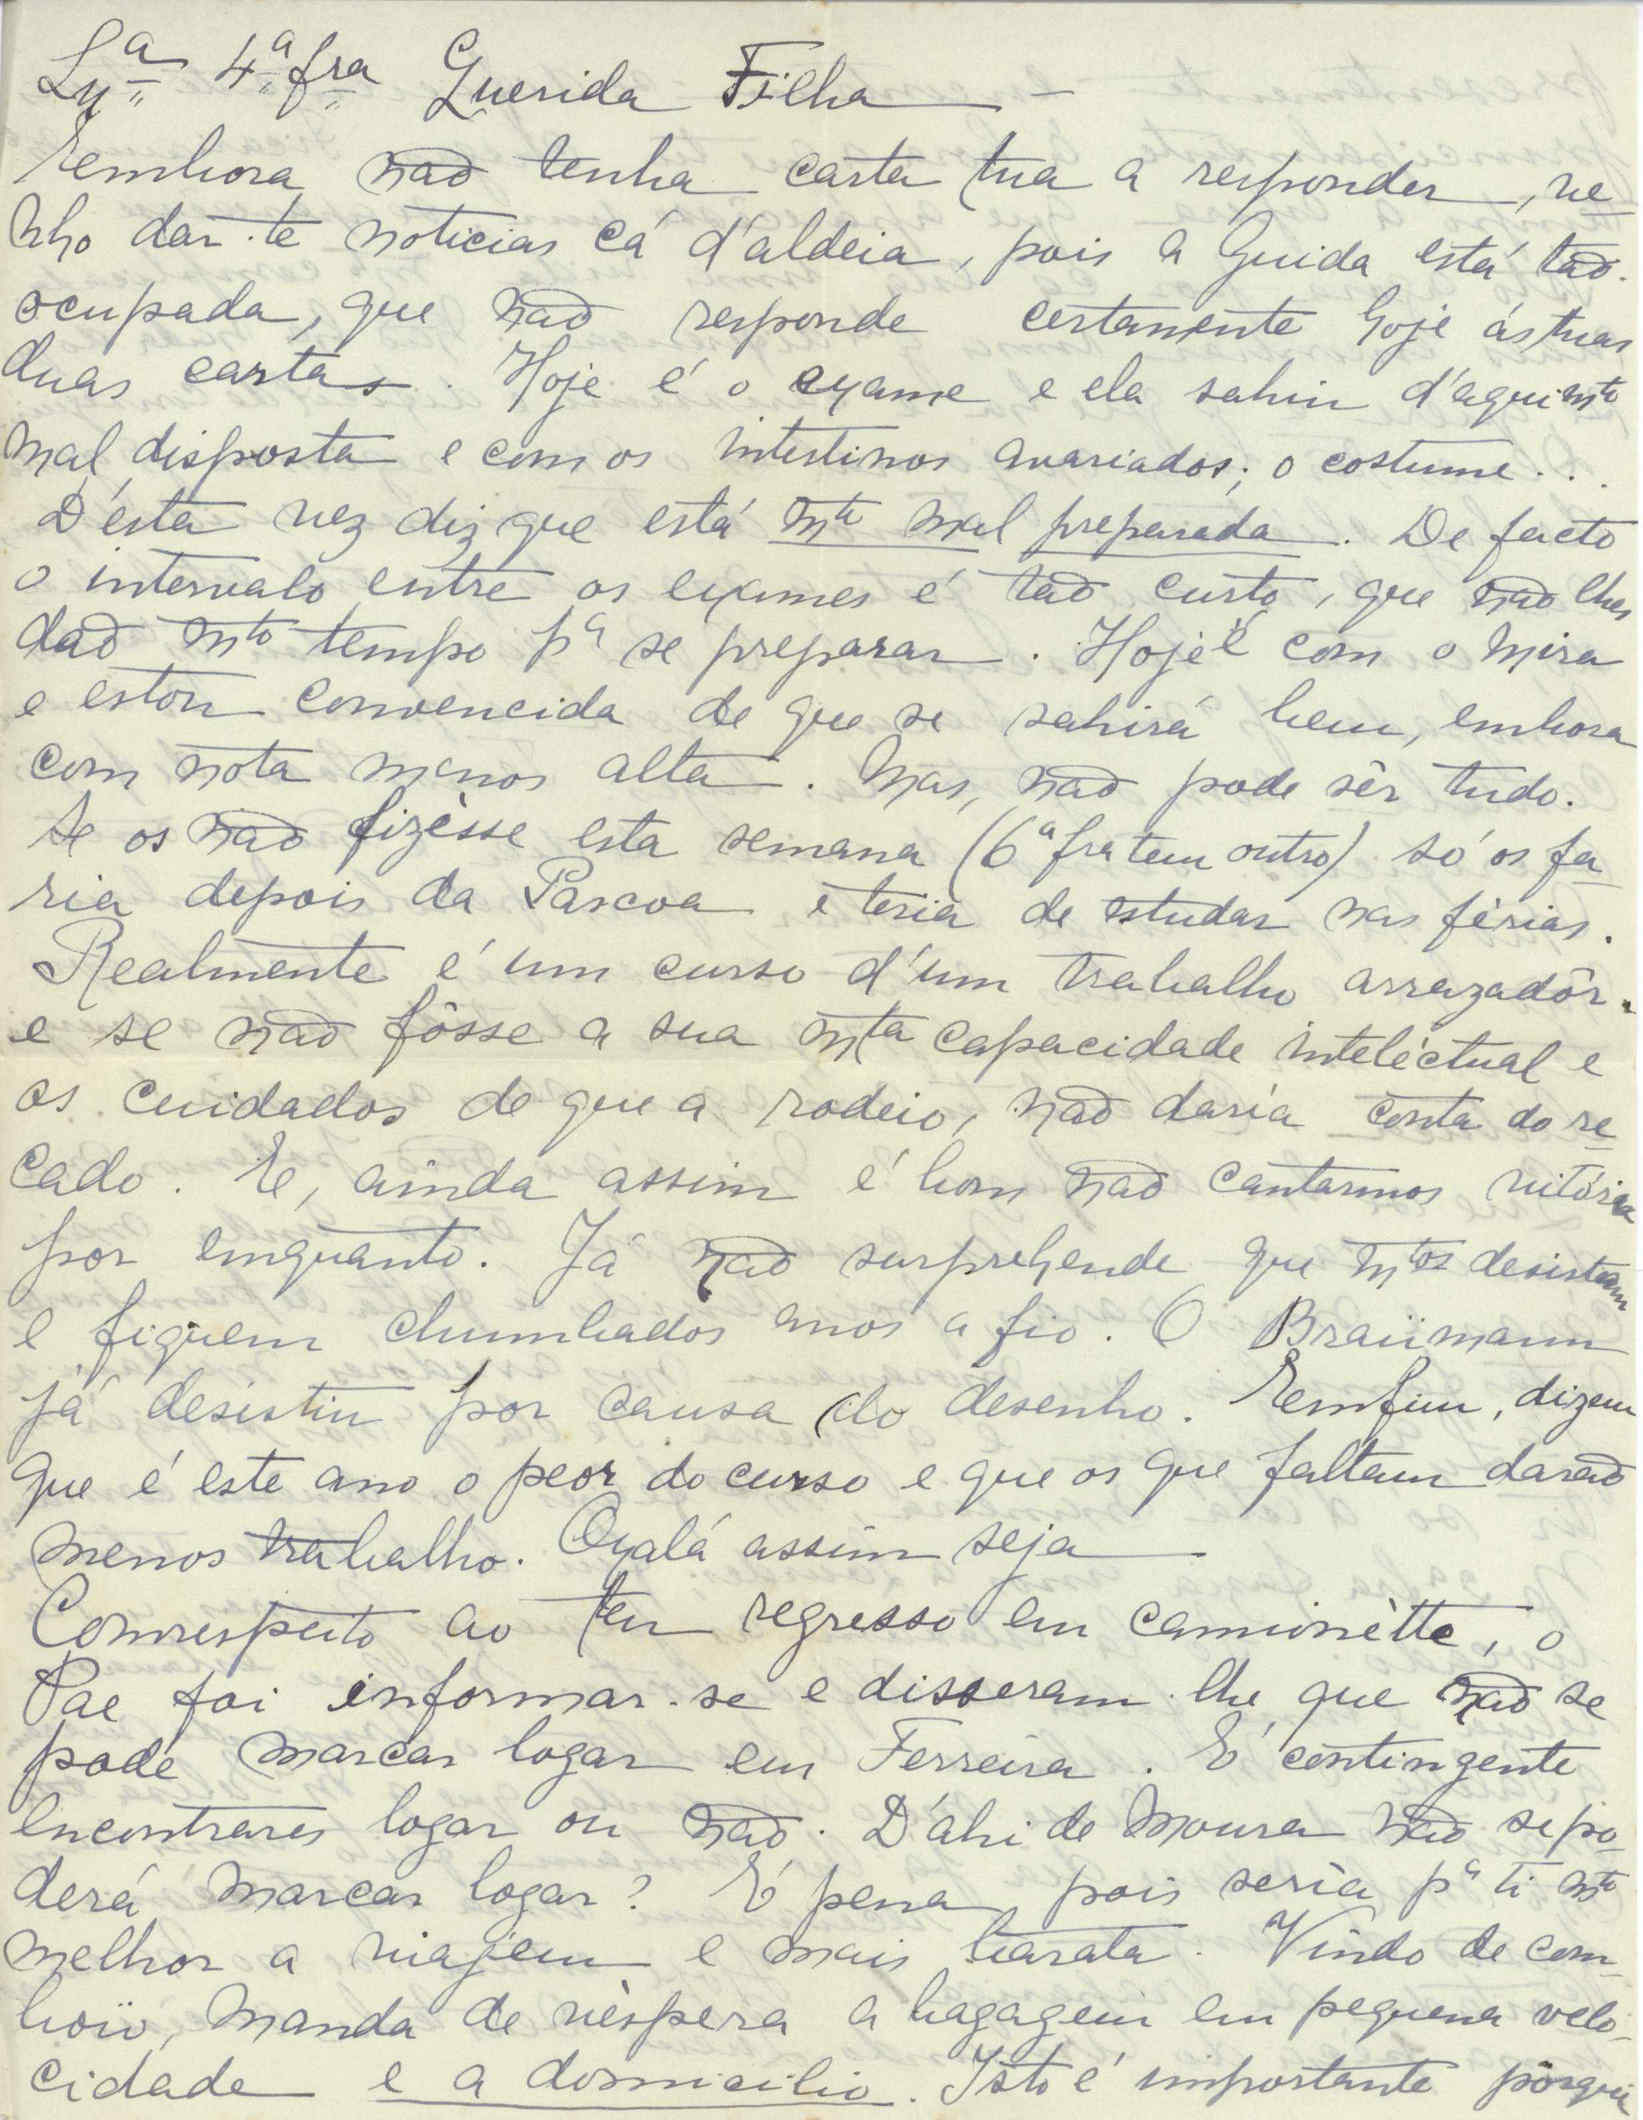 Lxª 4ª fra Querida Filha —
Embora não tenha carta tua a responder, ve-
nho dar-te noticias cá d'aldeia, pois a Guida está tão
ocupada, que não responde certamente hoje ás tuas
duas cartas. Hoje é o exame e ela sahiu d'aqui mto
mal disposta e com os intestinos avariados; o costume...
D'ésta vez diz que está mto mal preparada. De facto
o intervalo entre os exames é tão curto, que não lhes
dão mto tempo pª se preparar. Hoje é com o Mira
e estou convencida de que se sahirá bem, embora
com nota menos alta. Mas, não pode sêr tudo.
Se os não fizèsse esta semana (6ª fra tem outro) só os fa-
ria depois da Pascoa e teria de estudar nas férias.
Realmente é um curso d'um trabalho arrazadôr
e se não fôsse a sua mta capacidade inteléctual e
os cuidados de que a rodeio, não daria conta do re-
cado. E, ainda assim é bom não cantarmos vitória
por enquanto. Já não surprehende que mtos desistam
e fiquem chumbados anos a fio. O Braümann
já desistiu por causa do desenho. Emfim, dizem
que é este ano o peor do curso e que os que faltam darão
menos trabalho. Oxalá assim seja
Com respeito ao teu regresso em camionètte, o
Pae foi informar-se e disseram-lhe que não se
pode marcar logar em Ferreira. É contingente
encontrares logar ou não. D'ahi de Moura não se po-
derá marcar logar? É pena pois seria pª ti mto
melhor a viajem e mais barata. Vindo de com-
boio, manda de vèspera a bagagem em pequena velo-
cidade e a domicilio. Isto é importante porque